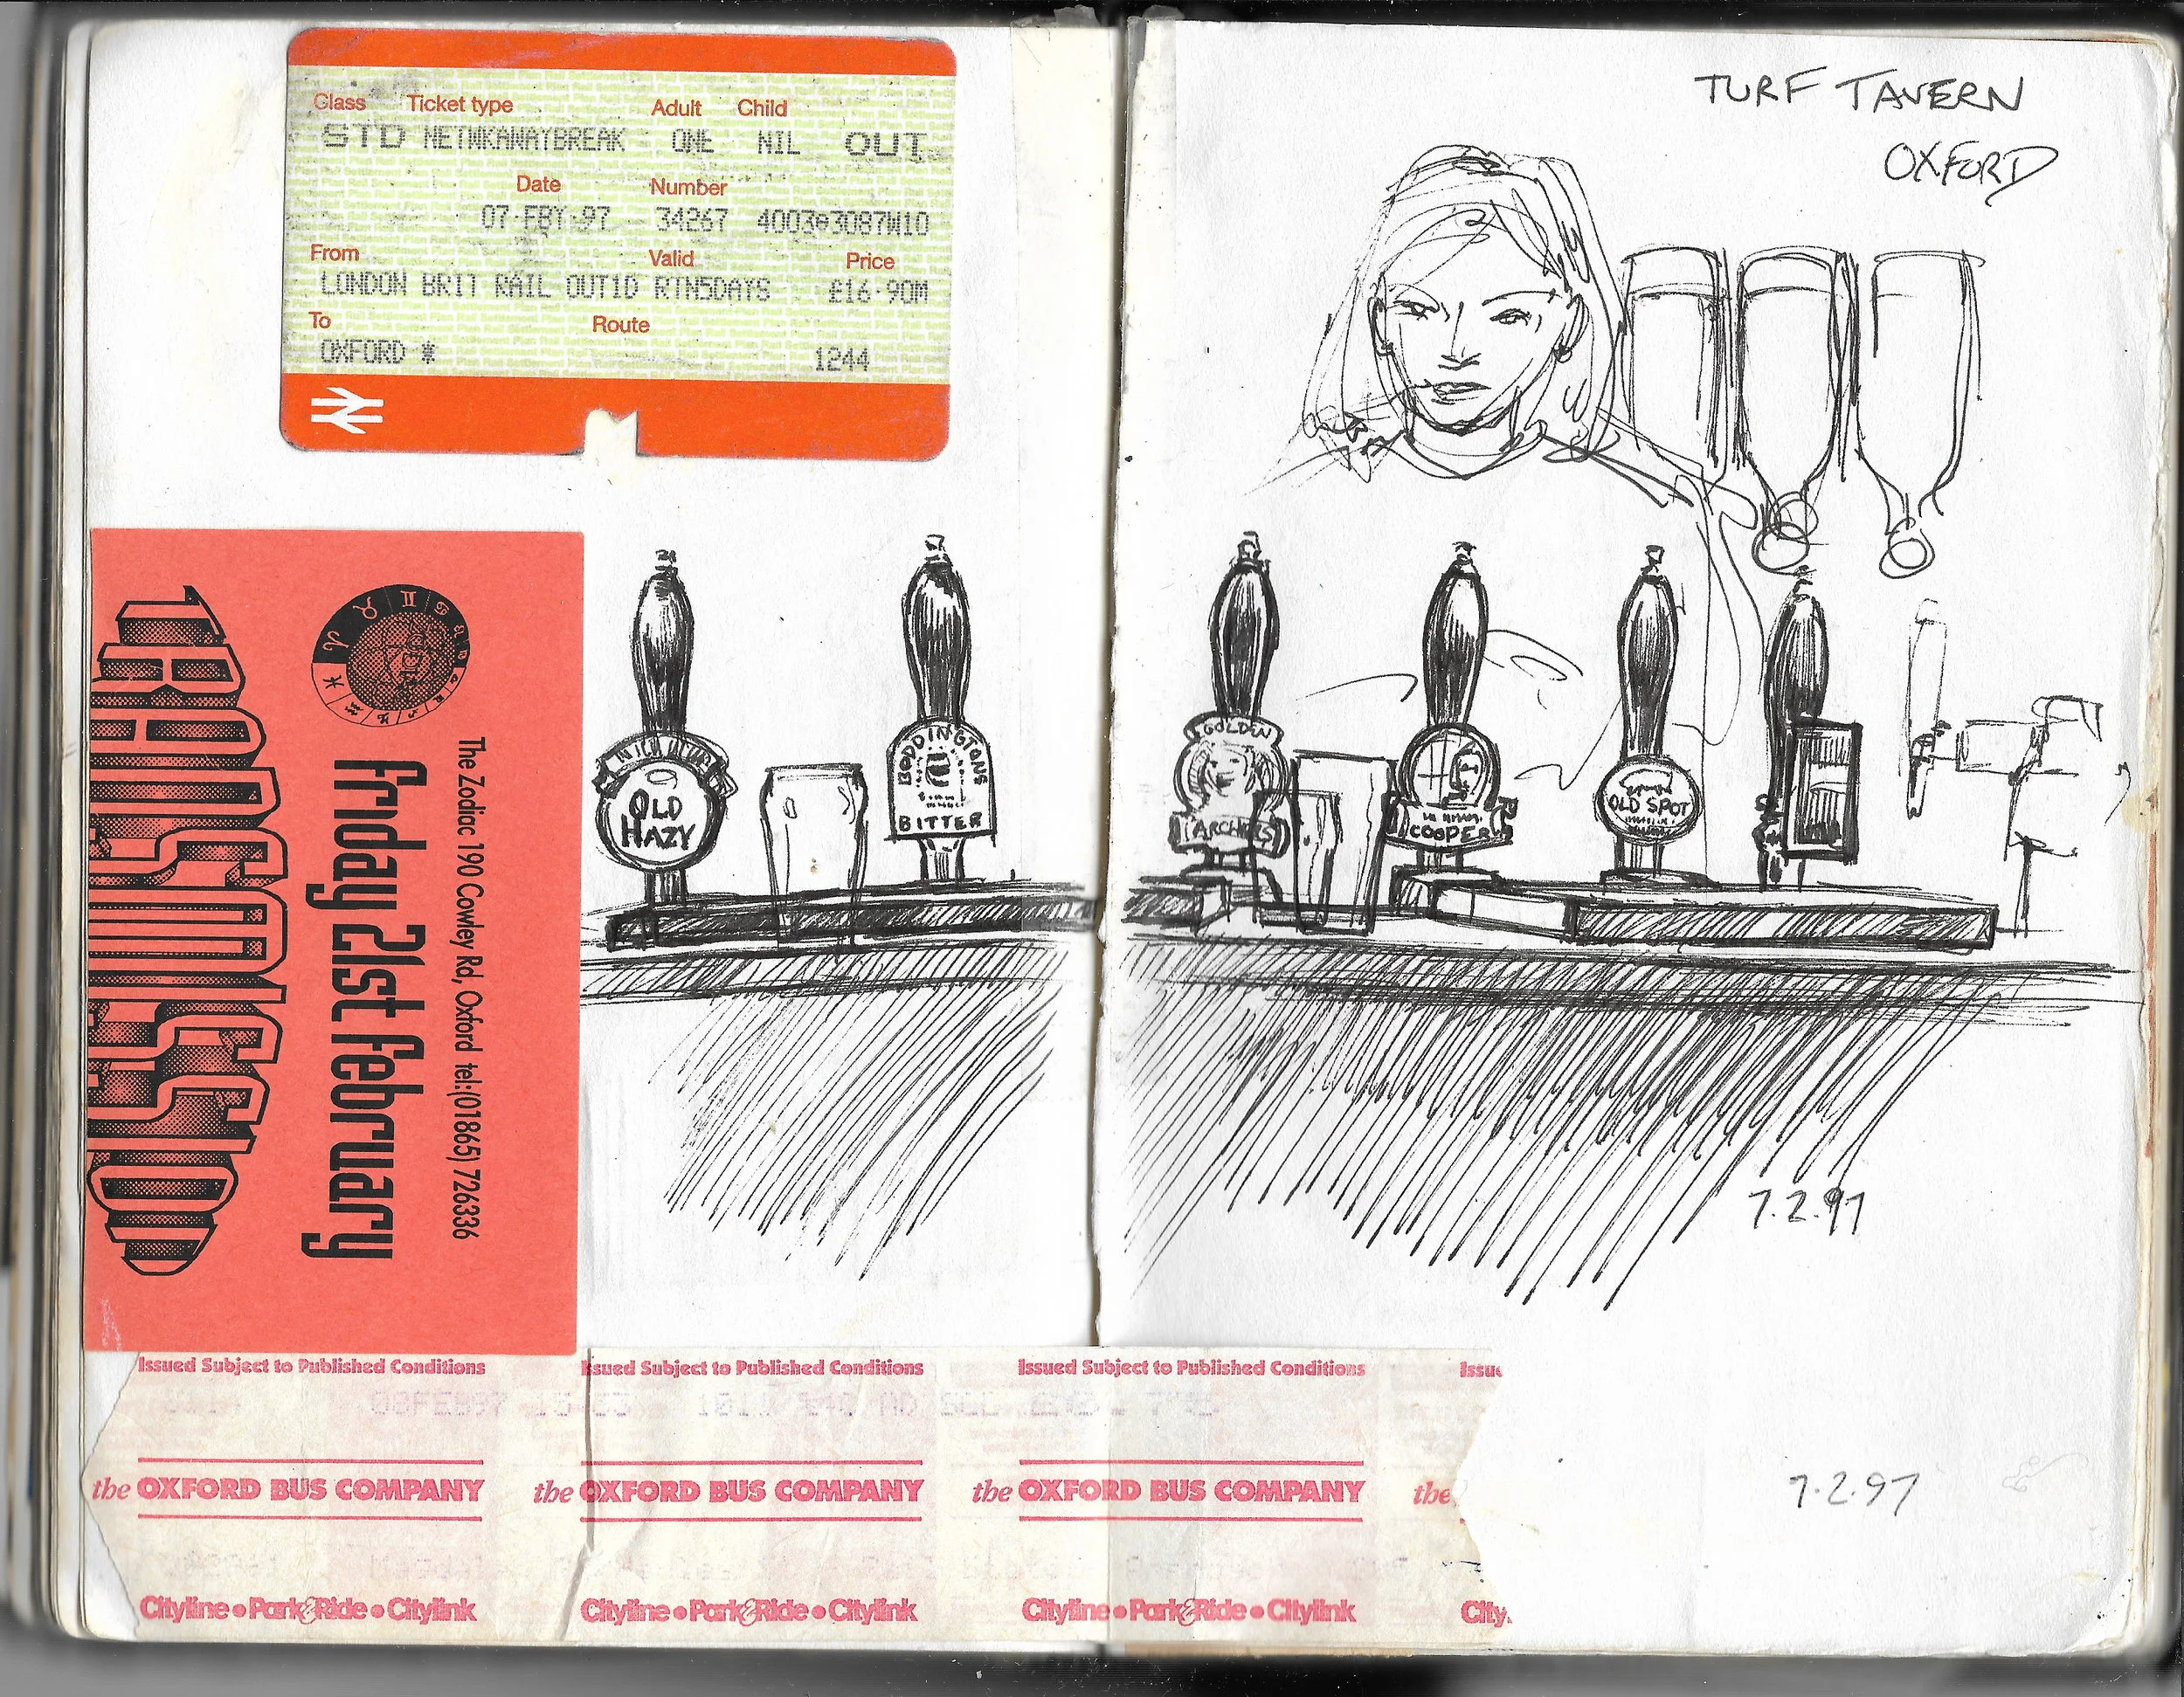 Class Ticket type Adult Child
STD NETWKAWAYBREAK ONE NIL OUT
Date Number
07·FBY·97 34267 4003 3087W10
From Valid Price
LONDON BRIT RAIL OUT1D RTN5DAYS £16·90M
To Route
OXFORD * 1244
TURF TAVERN
OXFORD
The Zodiac 190 Cowley Rd, Oxford tel:(01865) 726336
friday 21st february
TRANSMISSION
OLD
HAZY
BODDINGTONS
BITTER
GOLDEN
ARCHERS
COOPER
OLD SPOT
7.2.97
Issued Subject to Published Conditions Issued Subject to Published Conditions Issued Subject to Published Conditions Issu
the OXFORD BUS COMPANY the OXFORD BUS COMPANY the OXFORD BUS COMPANY the
7.2.97
Cityline • Park & Ride • Citylink Cityline • Park & Ride • Citylink Cityline • Park & Ride • Citylink City